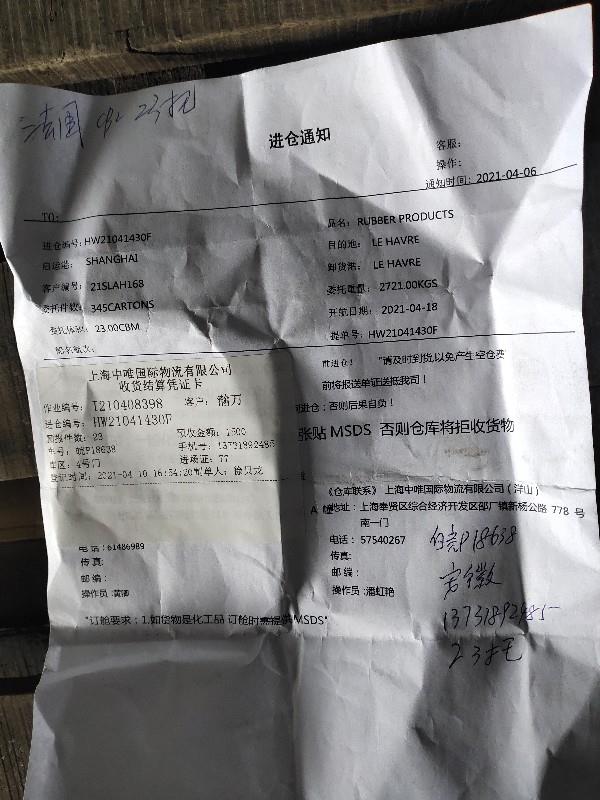 法国 23托
进仓通知
客服：
操作：
通知时间：2021-04-06
TO:
进仓编号：HW21041430F
品名：RUBBER PRODUCTS
启运港：SHANGHAI
目的地：LE HAVRE
卸货港：LE HAVRE
客户编号：21SLAH168
委托重量：2721.00KGS
委托件数：345CARTONS
开航日期：2021-04-18
委托体积：23.00CBM
提单号：HW21041430F
船名航次：
前进仓！ "请及时到货以免产生空仓费
前将报送单证送抵我司！
进仓；否则后果自负！
张贴 MSDS 否则仓库将拒收货物
上海中唯国际物流有限公司
收货结算凭证卡
作业编号：I210408398 客户：瀚万
进仓编号：HW21041430F
件数：23 预收金额：1500
车号：皖P18638 手机号：13731892485
库区：4号门 进场证：77
登记时间：2021-04-10 16:54:20制单人：徐
《仓库联系》上海中唯国际物流有限公司（洋山）
A 幢 地址：上海奉贤区综合经济开发区邵厂镇新杨公路 778 号
南一门
电话：61486989
电话：57540267
传真：
传真：
邮编：
邮编：
操作员：黄卿
操作员：潘虹艳
"订舱要求：1.如货物是化工品 订舱时需提供MSDS"
皖P18638
13731892485
23托